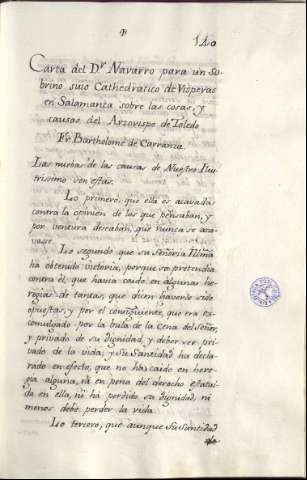 140
Carta del Dr. Navarro para un So-
brino suio Cathedratico de Visperas
en Salamanca sobre las cosas, y
causas del Arzovispo de Toledo
Fr. Bartholome de Carranza.
Las nuebas de las causas de Nuestro Ilus-
trissimo son estas.
Lo primero, que ella es acavada
contra la opinion de los que pensaban, y
por ventura deseaban, que nunca se aca-
vase.
Lo segundo que su Señoria Illma.
ha obtenido victoria, porque se pretendia
contra él, que havia caido en algunas he-
regias de tantas, que dicen haversele sido
opuestas, y por el consiguiente, que era ex-
comulgado por la bula de la Cena del Señor,
y privado de su dignidad, y deber ser pri-
vado de la vida, y Su Santidad ha decla-
rado en efecto, que no has caido en here-
gia alguna, ni en pena del derecho estatui-
da en ella, ni há perdido su dignidad, ni
menos debe perder la vida.
Lo tercero, que aunque Su Santidad